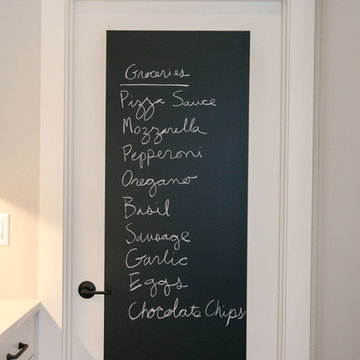 Groceries
Pizza Sauce
Mozzarella
Pepperoni
Oregano
Basil
Sausage
Garlic
Eggs
Chocolate Chips